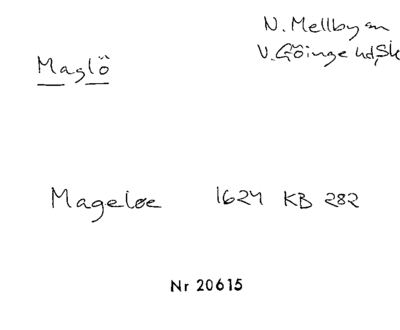 N. Mellby sn
V. Göinge hd, Sk
Maglö
Mageløe 1624 KB 282
Nr 20615